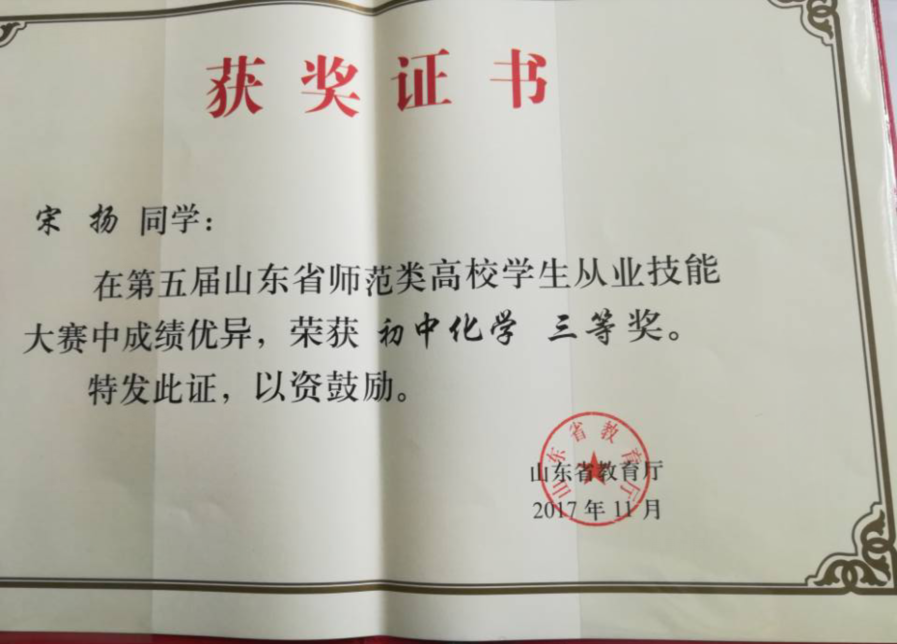 获奖证书
宋扬 同学：
在第五届山东省师范类高校学生从业技能
大赛中成绩优异，荣获 初中化学 三等奖。
特发此证，以资鼓励。
山东省教育厅
山东省教育厅
2017年11月